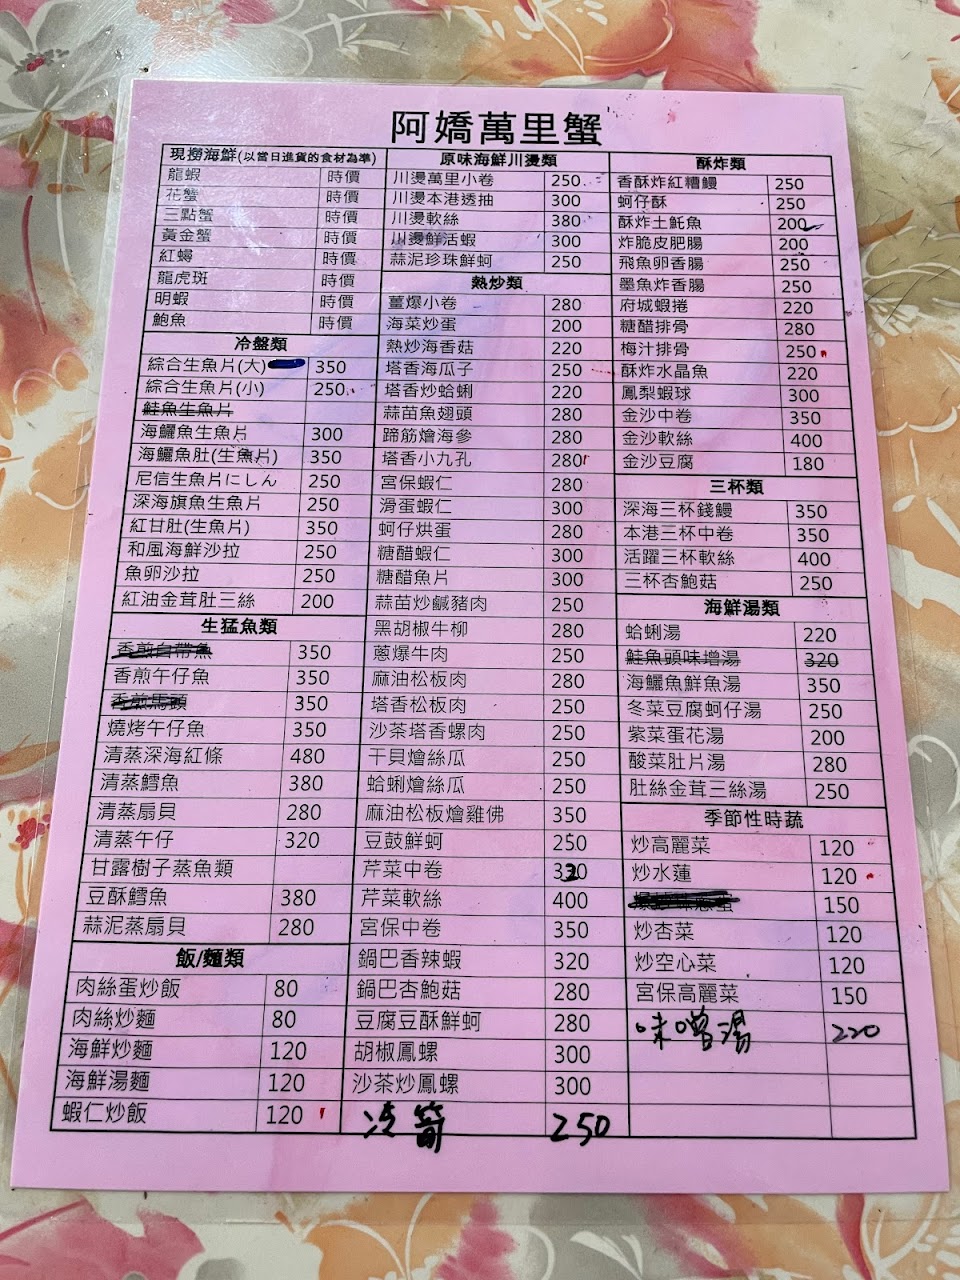 阿嬌萬里蟹
現撈海鮮(以當日進貨的食材為準)
龍蝦 時價
花蟹 時價
三點蟹 時價
黃金蟹 時價
紅蟳 時價
龍虎斑 時價
明蝦 時價
鮑魚 時價
冷盤類
綜合生魚片(大) 350
綜合生魚片(小) 250
鮭魚生魚片
海鱺魚生魚片 300
海鱺魚肚(生魚片) 350
尼信生魚片にしん 250
深海旗魚生魚片 250
紅甘肚(生魚片) 350
和風海鮮沙拉 250
魚卵沙拉 250
紅油金茸肚三絲 200
生猛魚類
香煎白帶魚 350
香煎午仔魚 350
香煎馬頭 350
燒烤午仔魚 350
清蒸深海紅條 480
清蒸鱈魚 380
清蒸扇貝 280
清蒸午仔 320
甘露樹子蒸魚類
豆酥鱈魚 380
蒜泥蒸扇貝 280
飯/麵類
肉絲蛋炒飯 80
肉絲炒麵 80
海鮮炒麵 120
海鮮湯麵 120
蝦仁炒飯 120
原味海鮮川燙類
川燙萬里小卷 250
川燙本港透抽 300
川燙軟絲 380
川燙鮮活蝦 300
蒜泥珍珠鮮蚵 250
熱炒類
薑爆小卷 280
海菜炒蛋 200
熱炒海香菇 220
塔香海瓜子 250
塔香炒蛤蜊 220
蒜苗魚翅頭 280
蹄筋燴海參 280
塔香小九孔 280
宮保蝦仁 280
滑蛋蝦仁 300
蚵仔烘蛋 280
糖醋蝦仁 300
糖醋魚片 300
蒜苗炒鹹豬肉 250
黑胡椒牛柳 280
蔥爆牛肉 250
麻油松板肉 280
塔香松板肉 250
沙茶塔香螺肉 250
干貝燴絲瓜 250
蛤蜊燴絲瓜 250
麻油松板燴雞佛 350
豆鼓鮮蚵 250
芹菜中卷 320
芹菜軟絲 400
宮保中卷 350
鍋巴香辣蝦 320
鍋巴杏鮑菇 280
豆腐豆酥鮮蚵 280
胡椒鳳螺 300
沙茶炒鳳螺 300
冷筍 250
酥炸類
香酥炸紅糟鰻 250
蚵仔酥 250
酥炸土魠魚 200
炸脆皮肥腸 200
飛魚卵香腸 250
墨魚炸香腸 250
府城蝦捲 220
糖醋排骨 280
梅汁排骨 250
酥炸水晶魚 220
鳳梨蝦球 300
金沙中卷 350
金沙軟絲 400
金沙豆腐 180
三杯類
深海三杯錢鰻 350
本港三杯中卷 350
活躍三杯軟絲 400
三杯杏鮑菇 250
海鮮湯類
蛤蜊湯 220
鮭魚頭味增湯 320
海鱺魚鮮魚湯 350
冬菜豆腐蚵仔湯 250
紫菜蛋花湯 200
酸菜肚片湯 280
肚絲金茸三絲湯 250
季節性時蔬
炒高麗菜 120
炒水蓮 120
150
炒杏菜 120
炒空心菜 120
宮保高麗菜 150
味噌湯 220